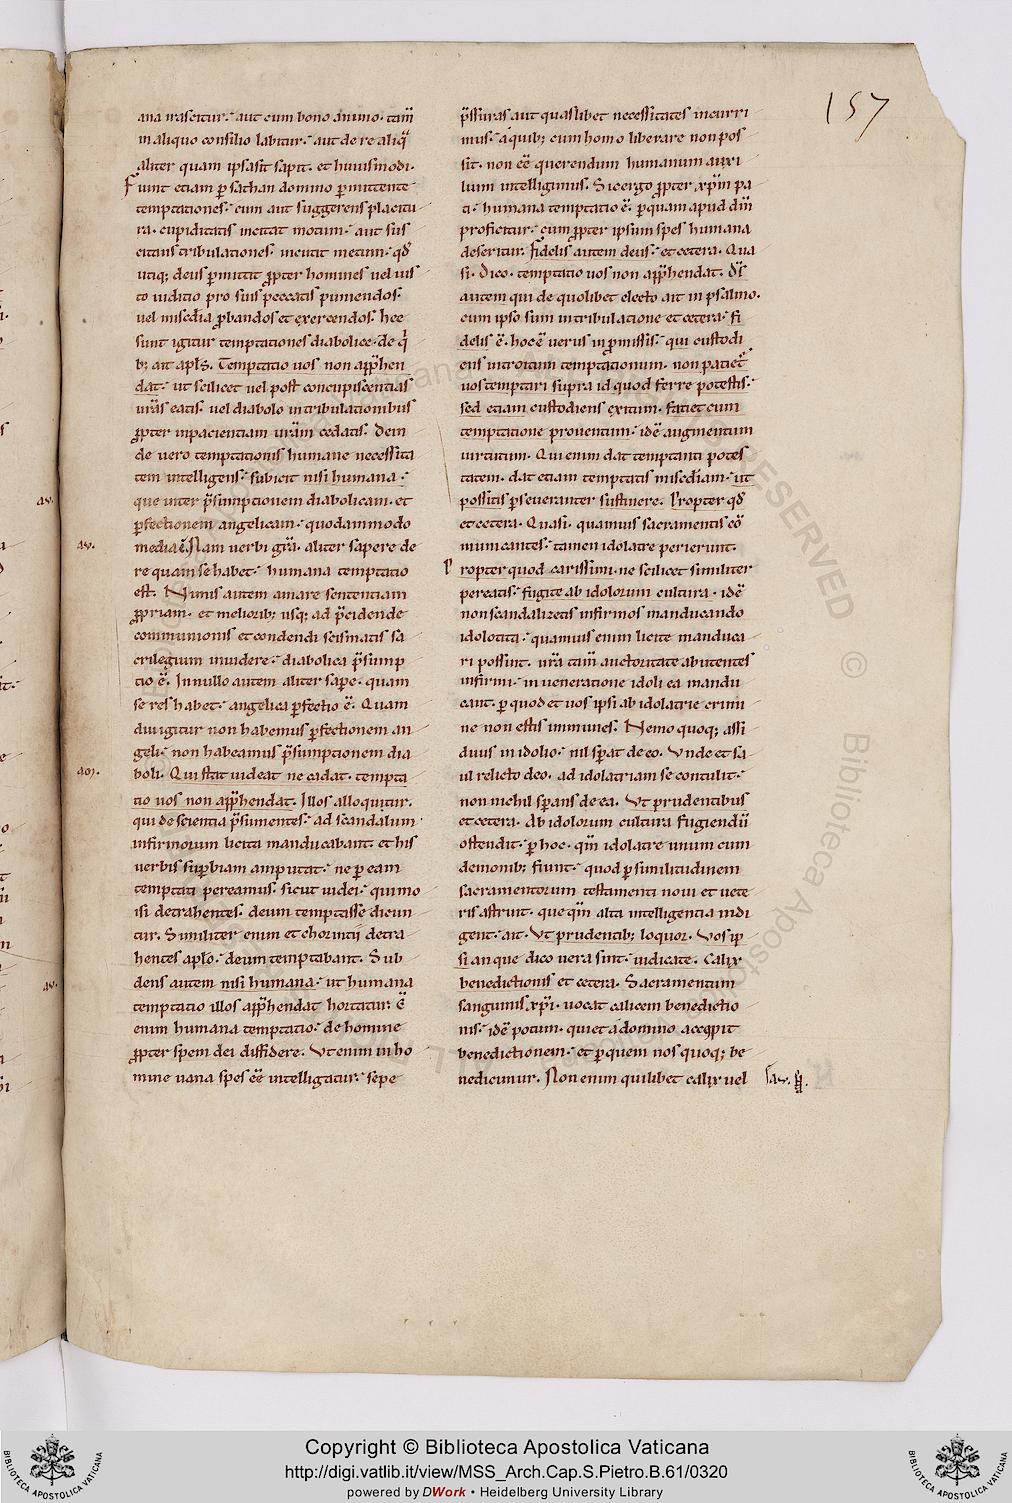 157
ana irascitur. aut cum bono animo. tam̄
in aliquo consilio labitur. aut de re aliq̄
aliter quam ipsa sit sapit. et huiusmodi.
Fiunt etiam ꝑ sathan domino ꝑmittente
temptationes. cum aut suggerens placitu
ra. cupiditatis incitat motum. aut sus
citans tribulationes. incutit metum. qđ
utiq; deus ꝑmittit ꝓpter homines uel ius
to iuditio pro suis peccatis puniendos.
uel mis̄c̄dia ꝓbandos et exercendos. hee
sunt igitur temptationes diabolice. de q̇
b; ait apl̄s. Temptatio uos non app̄hen
dat. ut scilicet uel post concupiscentias
ur̄as eatis. uel diabolo in tribulationibus
ꝓpter inpacientiam ur̄am cedatis. Dein
de uero temptationis humane necessita
tem intelligens. subicit nisi humana.
que inter p̄sumptionem diabolicam. et
ꝑfectionem angelicam. quodammodo
media ē. Nam uerbi gr̄a. aliter sapere de
re quam se habet. humana temptatio
est. Nimis autem amare sententiam
ꝓpriam. et meliorib; usq; ad p̄cidende
communionis et condendi scismatis sa
crilegium inuidere. diabolica p̄sump
tio ē. In nullo autem aliter saꝑe. quam
se res habet. angelica ꝑfectio ē. Quam
diu igitur non habemus ꝑfectionem an
geli. non habeamus p̄sumptionem dia
boli. Qui stat uideat ne cadat. tempta
tio uos non app̄hendat. Illos alloquitur.
qui de scientia p̄sumentes. ad scandalum
infirmorum licita manducabant. et his
uerbis suꝑbiam amputat. ne ꝑ eam
temptati pereamus. sicut iudei. qui mo
isi detrahentes. deum temptasse dicun
tur. Similiter enim et chorintii detra
hentes apl̄o. deum temptabant. Sub
dens autem nisi humana. ut humana
temptatio illos app̄hendat hortatur. Ē
enim humana temptatio. de homine
ꝓpter spem dei diffidere. Vt enim in ho
mine uana spes eē intelligatur. sepe
p̄ssuras aut quaslibet necessitates incurri
mus. a quib; cum homo liberare non pos
sit. non eē querendum humanum auxi
lium intelligimus. Si ergo ꝓpter xp̄m pa
ti. humana temptatio ē. ꝑquam apud dm̄
proficitur. cum ꝓpter ipsum spes humana
deseritur. Fidelis autem deus. et cetera. Qua
si. Dico. temptatio uos non app̄hendat. Ds̄
autem qui de quolibet electo ait in psalmo.
cum ipso sum in tribulatione et cetera. fi
delis ē. hoc ē uerus in ꝓmissis. qui custodi
ens introitum temptationum. non patiet᷑
uos temptari supra id quod ferre potestis.
sed etiam custodiens exitum. faciet cum
temptatione prouentum. id ē augmentum
uirtutum. Qui enim dat temptanti potes
tatem. dat etiam temptatis mis̄c̄diam. ut
possitis ꝑseueranter sustinere. Propter qđ
et cetera. Quasi. quamuis sacramentis cō
municantes. tamen idolatre perierunt.
Propter quod carissimi. ne scilicet similiter
pereatis. fugite ab idolorum cultura. id ē
non scandalizetis infirmos manducando
idolotita. quamuis enim licite manduca
ri possint. ur̄a tam̄ auctoritate abutentes
infirmi. in ueneratione idoli ea mandu
cant. ꝑ quod et uos ipsi ab idolatrie crimi
ne non estis immunes. Nemo quoq; assi
duus in idolio. nil sꝑat de eo. Vnde et sa
ul relicto deo. ad idolatriam se contulit.
non nichil sꝑans de ea. Vt prudentibus
et cetera. Ab idolorum cultura fugiendū
ostendit. ꝑ hoc. qm̄ idolatre unum cum
demonib; fiunt. quod ꝑ similitudinem
sacramentorum testamenti noui et uete
ris astruit. que qm̄ alta intelligentia indi
gent. ait. Vt prudentib; loquor. Vos ip
si an que dico uera sint. iudicate. Calix
benedictionis et cetera. Sacramentum
sanguinis xp̄i. uocat calicem benedictio
nis. id ē potum. qui et a domino accepit
benedictionem. et ꝑquem nos quoq; be
nedicimur. Non enim quilibet calix uel
Copyright © Biblioteca Apostolica Vaticana
http://digi.vatlib.it/view/MSS_Arch.Cap.S.Pietro.B.61/0320
powered by DWork • Heidelberg University Library
BIBLIOTECA APOSTOLICA VATICANA
BIBLIOTECA APOSTOLICA VATICANA